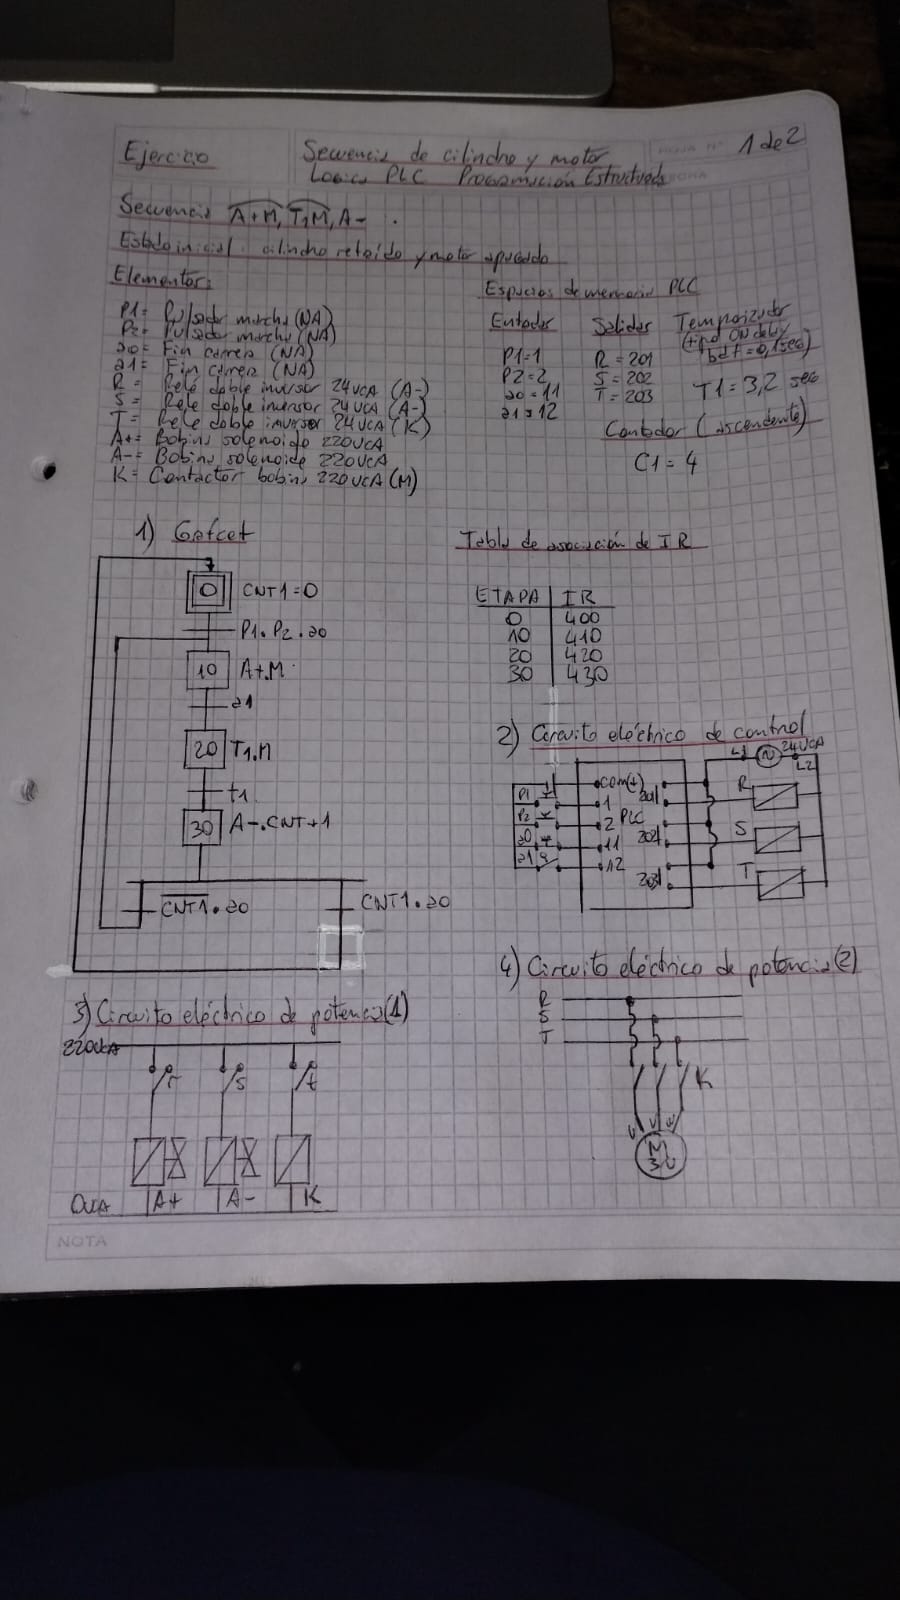 Ejercicio
Secuencia de cilindro y motor
1 de 2
Logica PLC Programación Estructurada
Secuencia A+M, T1M, A- .
Estado inicial: cilindro retraído y motor apagado
Elementos:
P1= Pulsador marcha (NA)
P2= Pulsador marcha (NA)
a0= Fin carrera (NA)
a1= Fin carrera (NA)
R = Relé doble inversor 24VCA (A-)
S = Rele doble inversor 24VCA (A-)
T = Rele doble inversor 24VCA (K)
A+= Bobina solenoide 220VCA
A-= Bobina solenoide 220VCA
K= Contactor bobina 220VCA (M)
Espacios de memoria PLC
Entradas
P1=1
P2=2
a0=11
a1=12
Salidas
R=201
S=202
T=203
Temporizador
(tipo ON delay
bdt=0,1seg)
T1=3,2 seg
Contador (ascendente)
C1=4
1) Gafcet
0 CNT1=0
P1.P2.a0
10 A+.M
a1
20 T1.M
t1
30 A-.CNT+1
CNT1.a0
CNT1.a0
Tabla de asociación de IR
ETAPA IR
0 400
10 410
20 420
30 430
2) Circuito eléctrico de control
L1 24VCA
L2
P1
P2
a0
a1
com(+)
1
2 PLC
11
12
201
202
203
R
S
T
3) Circuito eléctrico de potencia(1)
220VCA
r s t
0VCA A+ A- K
4) Circuito eléctrico de potencia(2)
R
S
T
K
M
NOTA